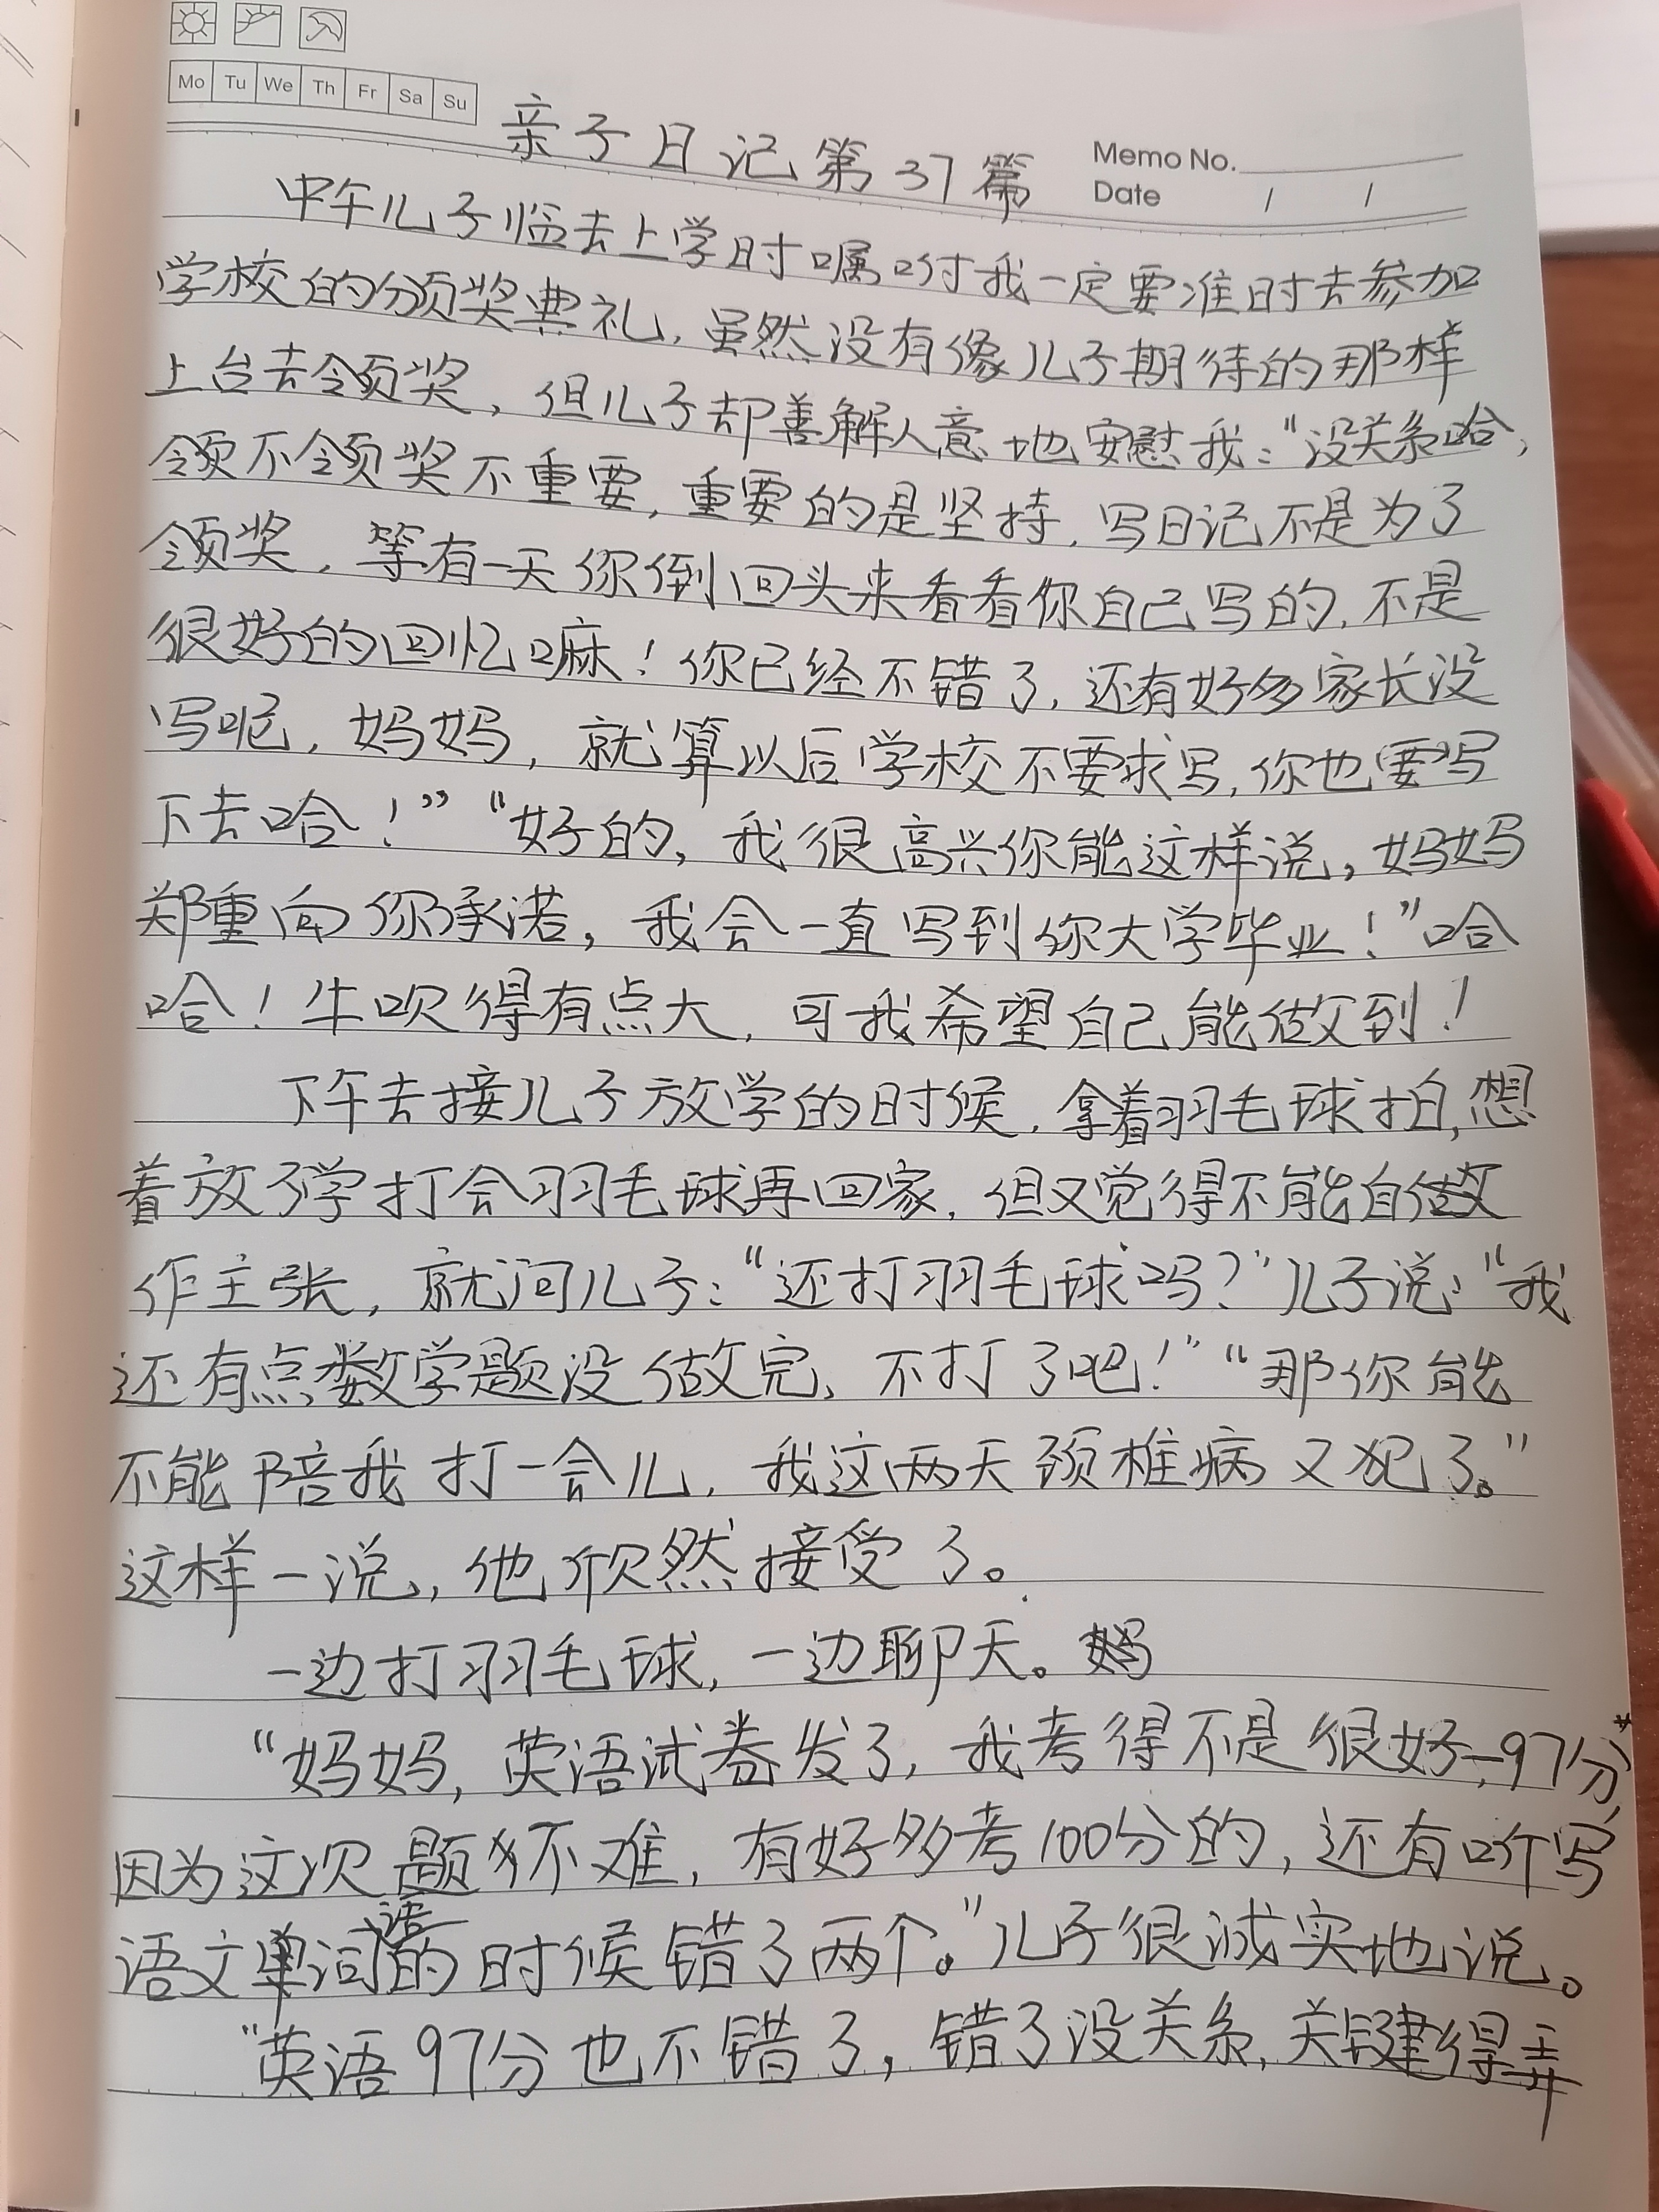 Mo Tu We Th Fr Sa Su
亲子日记第37篇
Memo No.
Date / /
中午儿子临去上学时嘱咐我一定要准时去参加
学校的颁奖典礼,虽然没有像儿子期待的那样
上台去领奖,但儿子却善解人意地安慰我:“没关系哈,
领不领奖不重要,重要的是坚持,写日记不是为了
领奖,等有一天你倒回头来看看你自己写的,不是
很好的回忆嘛!你已经不错了,还有好多家长没
写呢,妈妈,就算以后学校不要求写,你也要写
下去哈!”“好的,我很高兴你能这样说,妈妈
郑重向你承诺,我会一直写到你大学毕业!”哈
哈!牛吹得有点大,可我希望自己能做到!
下午去接儿子放学的时候,拿着羽毛球拍,想
着放了学打会羽毛球再回家,但又觉得不能自
作主张,就问儿子:“还打羽毛球吗?”儿子说:“我
还有点数学题没做完,不打了吧!”“那你能
不能陪我打一会儿,我这两天颈椎病又犯了。”
这样一说,他欣然接受了。
一边打羽毛球,一边聊天。
“妈妈,英语试卷发了,我考得不是很好,97分,
因为这次题不难,有好多考100分的,还有听写
语文词语的时候错了两个。”儿子很诚实地说。
“英语97分也不错了,错了没关系,关键得弄